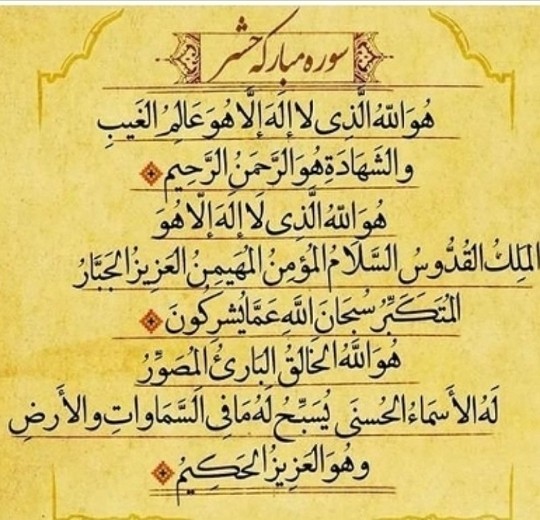 سوره مبارکه حشر
هُوَ اللّهُ الَّذِی لا إِلَهَ إِلَّا هُوَ عَالِمُ الغَیبِ
والشَهَادَةِ هُوَ الرَّحمَنُ الرَّحِیمُ
هُوَ اللّهُ الَّذِی لَا إِلَهَ إِلَّا هُوَ
المَلِكُ القُدُّوسُ السَّلَامُ المُؤمِنُ المُهَیمِنُ العَزِیزُ الجَبَّارُ
المُتَكَبِّرُ سُبحَانَ اللَّهِ عَمَّا یُشرِكُونَ
هُوَ اللَّهُ الخَالِقُ البَارِئُ المُصَوِّرُ
لَهُ الأَسمَاءُ الحُسنَی یُسَبِّحُ لَهُ مَا فِی السَّمَاوَاتِ والأَرضِ
وهُوَ العَزِیزُ الحَكِیمُ